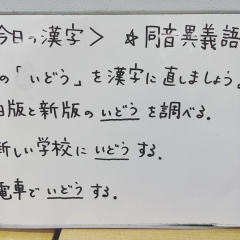 今日の漢字> ☆同音異義語
の「いどう」を漢字に直しましょう。
旧版と新版のいどうを調べる。
新しい学校にいどうする。
電車でいどうする。